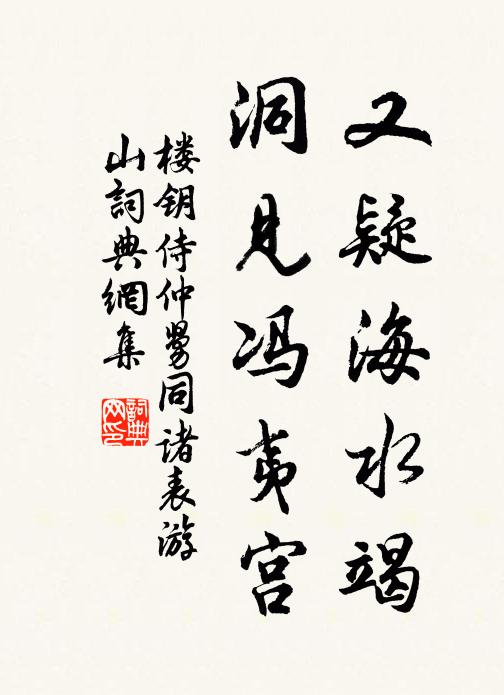 又疑海水竭
洞见冯夷宫
楼钥侍仲舅同诸表游
山詞典網集
詞典
网印